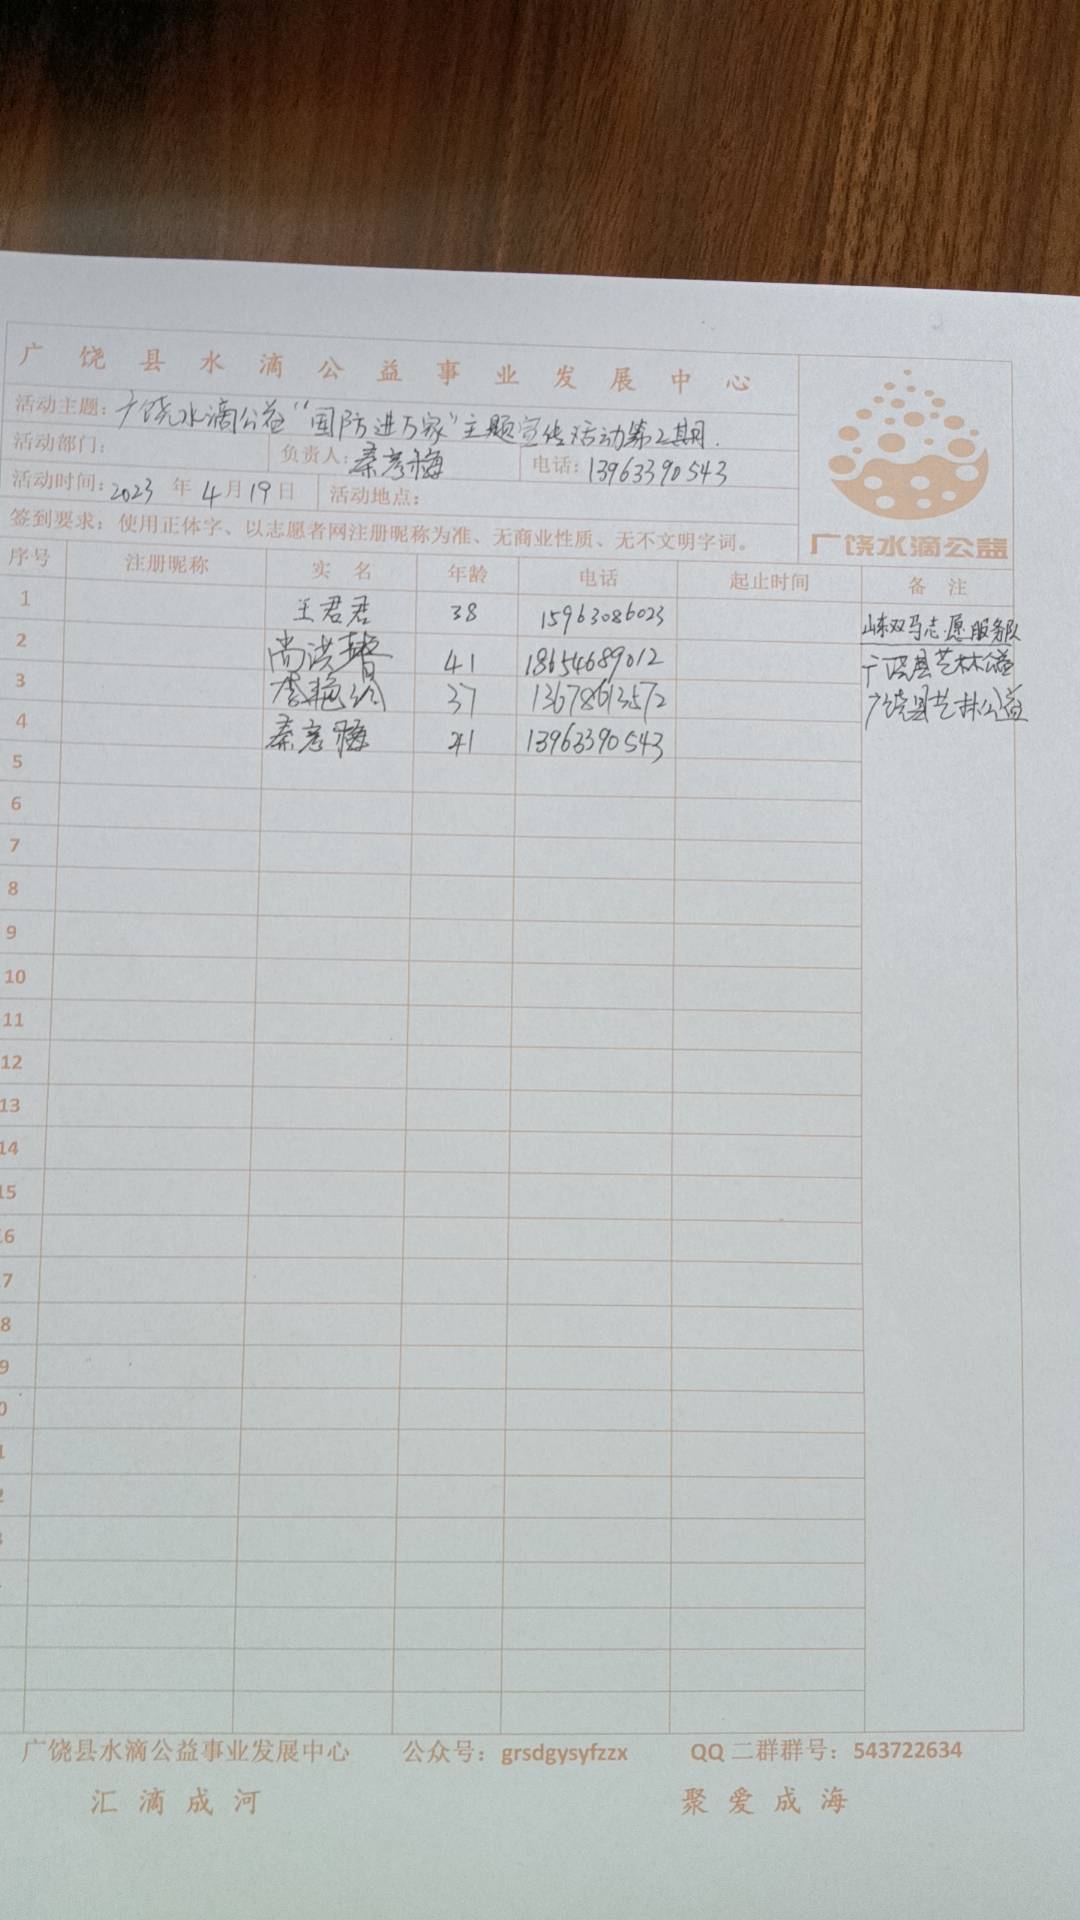 广饶县水滴公益事业发展中心
活动主题：广饶水滴公益“国防进万家”主题宣传活动第2期.
活动部门： 负责人：秦彦梅 电话：13963390543
活动时间：2023年4月19日 活动地点：
签到要求：使用正体字、以志愿者网注册昵称为准、无商业性质、无不文明字词。
广饶水滴公益
序号 注册昵称 实 名 年龄 电话 起止时间 备 注
1 王君君 38 15963086023 山东双马志愿服务队
2 尚洪 41 18654689012 广饶县艺林公益
3 艳 37 13678613572 广饶县艺林公益
4 秦彦梅 41 13963390543
5
6
7
8
9
10
11
12
13
14
15
16
7
8
9
0
1
2
3
广饶县水滴公益事业发展中心 公众号：grsdgysyfzzx QQ 二群群号：543722634
汇滴成河 聚爱成海